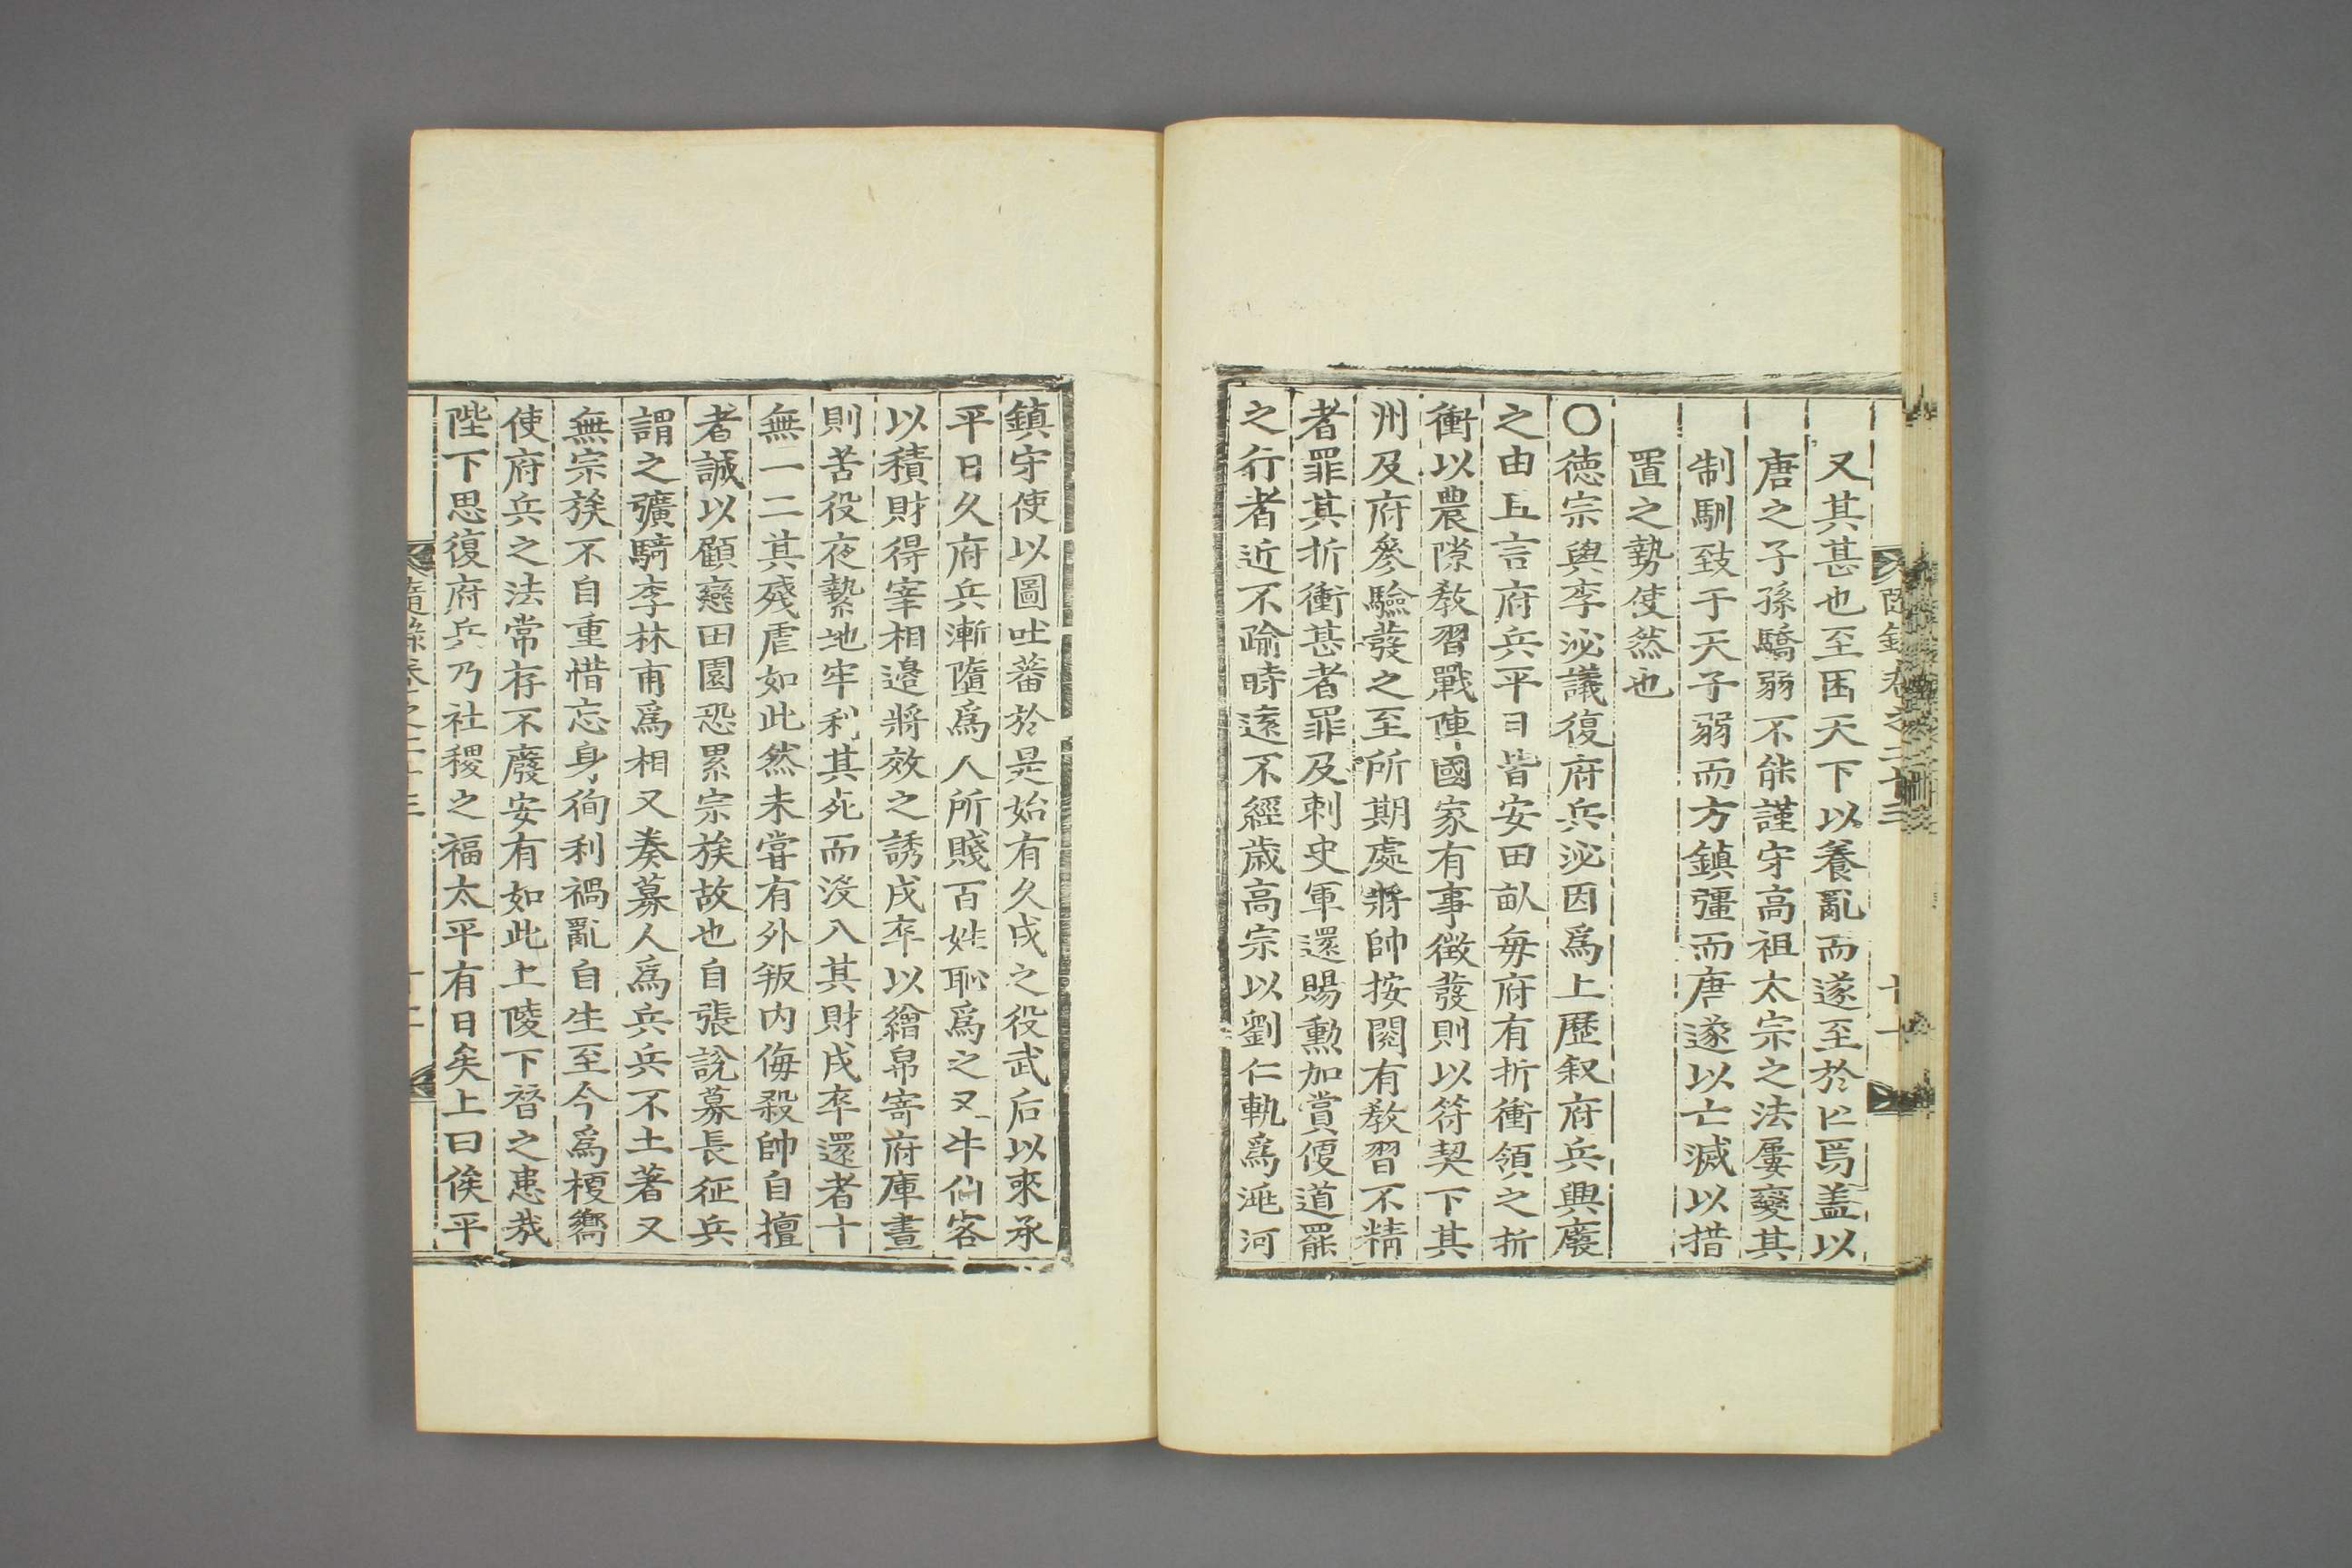 隨錄卷之二十三
十一
又其甚也至困天下以養亂而遂至於亡焉盖以
唐之子孫驕弱不能謹守高祖太宗之法屢變其
制馴致于天子弱而方鎮彊而唐遂以亡滅以措
置之勢使然也
〇德宗與李泌議復府兵泌因爲上歷叙府兵興廢
之由且言府兵平日皆安田畒每府有折衝領之折
衝以農隙敎習戰陣國家有事徵發則以符契下其
州及府參驗發之至所期處將帥按閱有敎習不精
者罪其折衝甚者罪及刺史軍還賜勳加賞便道罷
之行者近不踰時遠不經歲高宗以劉仁軌爲洮河
鎮守使以圖吐蕃於是始有久戍之役武后以來承
平日久府兵漸墮爲人所賤百姓恥爲之又牛仙客
以積財得宰相邊將效之誘戍卒以繒帛寄府庫晝
則苦役夜縶地牢利其死而沒入其財戍卒還者十
無一二其殘虐如此然未嘗有外叛內侮殺帥自擅
者誠以顧戀田園恐累宗族故也自張說募長征兵
謂之彍騎李林甫爲相又奏募人爲兵兵不土著又
無宗族不自重惜忘身徇利禍亂自生至今爲梗嚮
使府兵之法常存不廢安有如此上陵下替之患哉
陛下思復府兵乃社稷之福太平有日矣上曰俟平
隨錄卷之二十三
十二